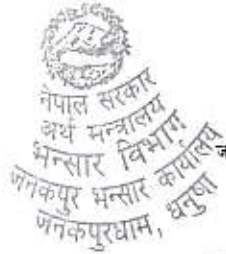 नेपाल सरकार
अर्थ मन्त्रालय
भन्सार विभाग
जनकपुर भन्सार कार्यालय
जनकपुरधाम, धनुषा